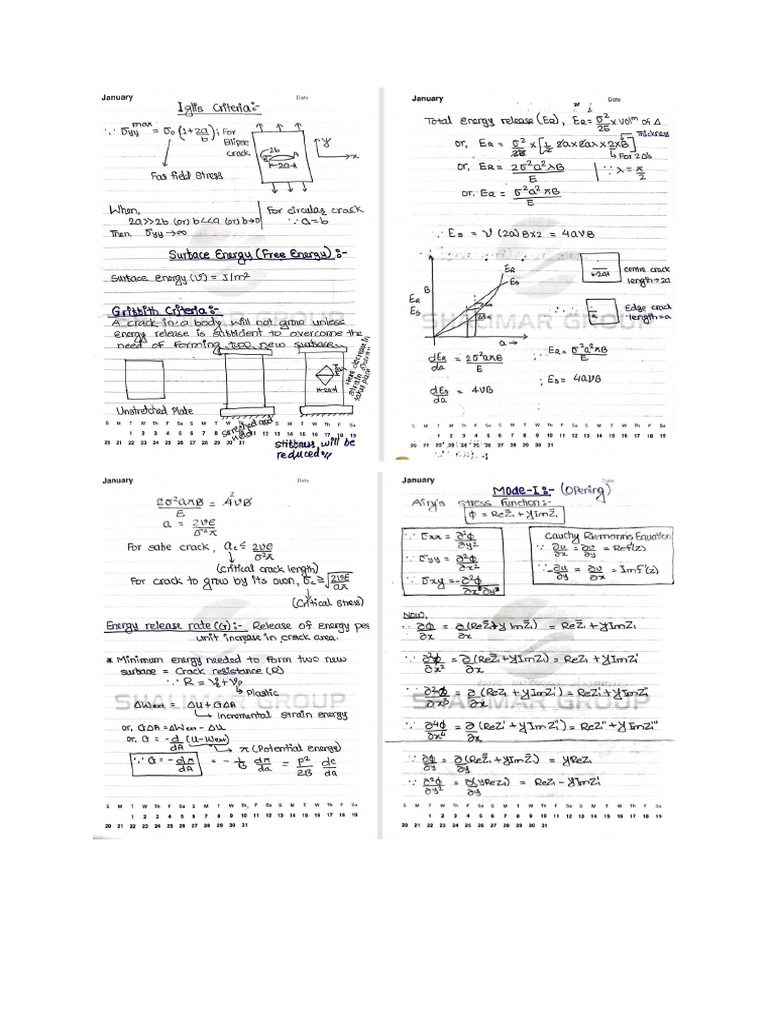 January
Date
Iglis Criteria:-
∵ σyy^max = σ0 (1+2a/b) ; For Ellipse crack
2b
A
←2a→
y
x
Far field stress
When,
2a>>2b (or) b<<a (or) b→0
Then σyy→∞
For circular crack
∵ a=b
Surface Energy (Free Energy):-
Surface energy (γ) = J/m²
Griffith Criteria:-
A crack in a body will not grow unless
energy release is sufficient to overcome the
need of forming two new surface.
Unstretched Plate
Stretched and Held
←2a→
Here decrease in strain energy takes place
Stiffness will be
reduced!!
S M T W Th F Sa S M T W Th F Sa S M T W Th F Sa
1 2 3 4 5 6 7 8 9 10 11 12 13 14 15 16 17 18 19
20 21 22 23 24 25 26 27 28 29 30 31
January
Date
Total energy release (ER), ER = σ²/2E × volm of Δ
or, ER = σ²/2E × [1/2 2a×2aλ×2×B]
Thickness
For 2Δ's
or, ER = 2σ²a²λB/E
∵ λ = π/2
or, ER = σ²a²πB/E
∵ Es = γ (2a)B×2 = 4aγB
ER
Es
ER
Es
a→
←2a→
centre crack
length→2a
a
Edge crack
length=a
dER/da = 2σ²aπB/E
∵ ER = σ²a²πB/E
dEs/da = 4γB
; Es = 4aγB
S M T W Th F Sa S M T W Th F Sa S M T W Th F Sa
1 2 3 4 5 6 7 8 9 10 11 12 13 14 15 16 17 18 19
20 21 22 23 24 25 26 27 28 29 30 31
January
Date
2σ²aπB/E = 4γB
a = 2γE/σ²π
For safe crack, ac ≤ 2γE/σ²π
(Critical crack length)
For crack to grow by its own, σc ≥ √(2γE/aπ)
(Critical Stress)
Energy release rate (G):- Release of energy per
unit increase in crack area.
* Minimum energy needed to form two new
surface = Crack resistance (R)
∵ R = γs + γp
Plastic
ΔWext = ΔU + GΔA
Incremental strain energy
or, GΔA = ΔWext - ΔU
or, G = -d/dA (U-Wext)
π (Potential energy)
∵ G = -dπ/dA = -1/B dπ/da = P²/2B dc/da
S M T W Th F Sa S M T W Th F Sa S M T W Th F Sa
1 2 3 4 5 6 7 8 9 10 11 12 13 14 15 16 17 18 19
20 21 22 23 24 25 26 27 28 29 30 31
January
Date
Mode-I:- (Opening)
Airy's stress function:-
ϕ = ReZ̿ + yImZ̄
∵ σxx = ∂²ϕ/∂y²
∵ σyy = ∂²ϕ/∂x²
∵ σxy = -∂²ϕ/∂x∂y
Cauchy Riemann's Equation
∵ ∂u/∂x = ∂v/∂y = Ref'(z)
∵ -∂u/∂y = ∂v/∂x = Imf'(z)
Now,
∵ ∂ϕ/∂x = ∂/∂x (ReZ̿ + yImZ̄) = ReZ̄ + yImZ
∵ ∂²ϕ/∂x² = ∂/∂x (ReZ̄ + yImZ) = ReZ + yImZ'
∵ ∂³ϕ/∂x³ = ∂/∂x (ReZ + yImZ') = ReZ' + yImZ''
∵ ∂⁴ϕ/∂x⁴ = ∂/∂x (ReZ' + yImZ'') = ReZ'' + yImZ'''
∵ ∂ϕ/∂y = ∂/∂y (ReZ̿ + yImZ̄) = yReZ
∵ ∂²ϕ/∂y² = ∂/∂y (yReZ) = ReZ - yImZ'
S M T W Th F Sa S M T W Th F Sa S M T W Th F Sa
1 2 3 4 5 6 7 8 9 10 11 12 13 14 15 16 17 18 19
20 21 22 23 24 25 26 27 28 29 30 31
SHALIMAR GROUP
SHALIMAR GROUP
SHALIMAR GROUP
SHALIMAR GROUP